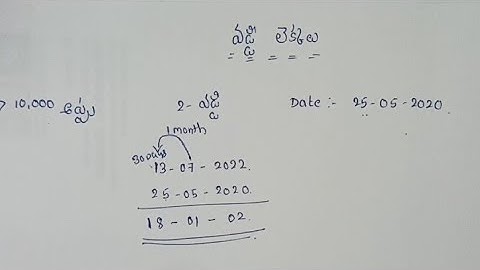 వడ్డి లెక్కలు
10,000 అప్పు 2 - వడ్డి Date :- 25-05-2020.
1 month
30 days
13 - 07 - 2022.
25 - 05 - 2020.
18 - 01 - 02.